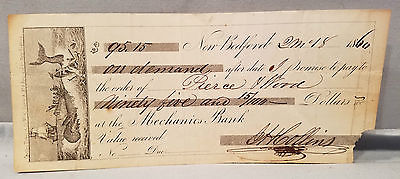 $ 95.15 New Bedford 3 Mo 18 1860
on demand after date I promise to pay to
the order of Pierce & Wood
Ninety five and Dollars
at the Mechanics Bank
Value received
No Due